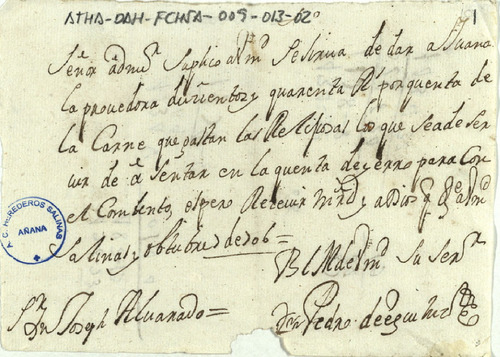 ATHA-DAH-FCHSA-009-013-02
1
Señor admor Suplico a Vm Se sirua de dar a Juana
la proueedora duzientos y quarenta Rs por quenta de
la Carne que gastan las Religiosas los que sea de ser
uir de asentar en la quenta de para Con
el Combento, espero Receuir mrd y a Dios q ge a Vm
Salinas y obtubre de 706=
BLM de Vm Su Serr
Sr Dn Joseph Aluarado=
Dn Pedro de
A.C. HEREDEROS SALINAS
AÑANA